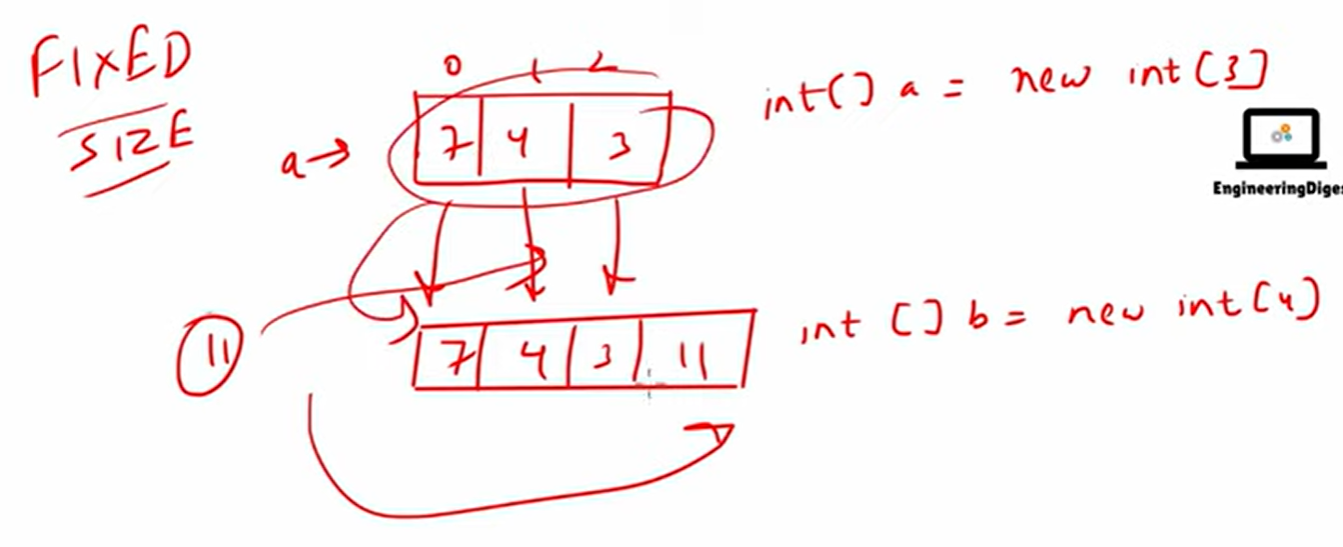 FIXED
SIZE
0 1 2
a → 7 4 3
int[] a = new int[3]
EngineeringDiges
11
7 4 3 11
int [] b = new int[4]